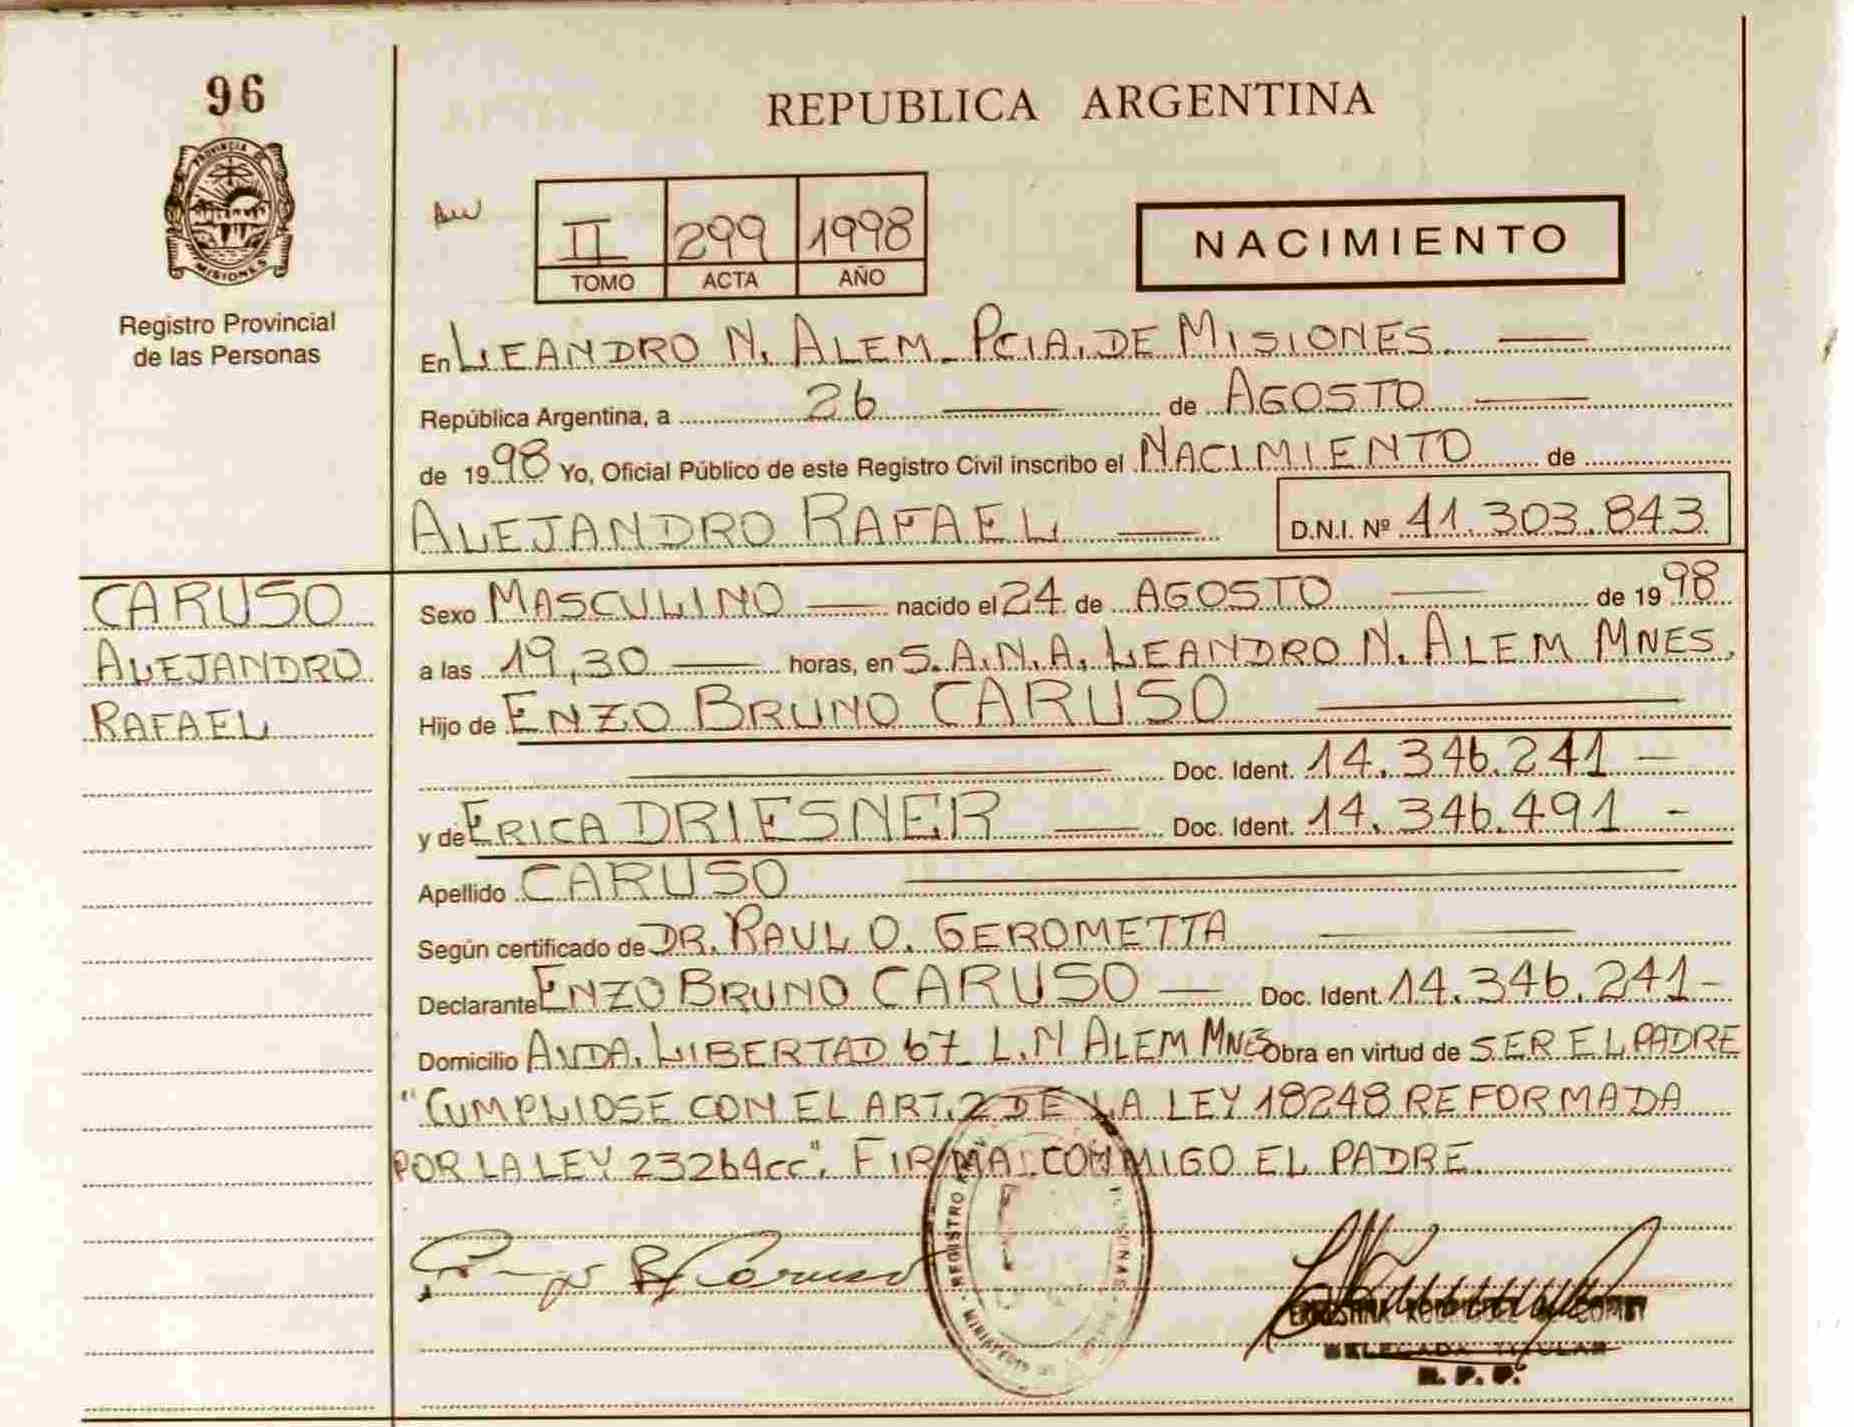 96
PROVINCIA DE
MISIONES
Registro Provincial
de las Personas
REPUBLICA ARGENTINA
II 299 1998
TOMO ACTA AÑO
NACIMIENTO
En LEANDRO N. ALEM - PCIA. DE MISIONES.
República Argentina, a 26 de AGOSTO
de 1998 Yo, Oficial Público de este Registro Civil inscribo el NACIMIENTO de
ALEJANDRO RAFAEL D.N.I. Nº 41.303.843
CARUSO
ALEJANDRO
RAFAEL
Sexo MASCULINO nacido el 24 de AGOSTO de 1998
a las 19,30 horas, en S.A.N.A. LEANDRO N. ALEM MNES.
Hijo de ENZO BRUNO CARUSO
Doc. Ident. 14.346.241 -
y de ERICA DRIESNER Doc. Ident. 14.346.491 -
Apellido CARUSO
Según certificado de DR. RAUL O. GEROMETTA
Declarante ENZO BRUNO CARUSO Doc. Ident. 14.346.241-
Domicilio AVDA. LIBERTAD 67 L.N ALEM MNES Obra en virtud de SER EL PADRE
"CUMPLIOSE CON EL ART. 2 DE LA LEY 18248 REFORMADA
POR LA LEY 23264cc". FIRMA CONMIGO EL PADRE.
B Caruso
REGISTRO
PERSONAS
MINISTERIO DE
RODRIGUEZ DE
DELEGADA TITULAR
R. P. P.